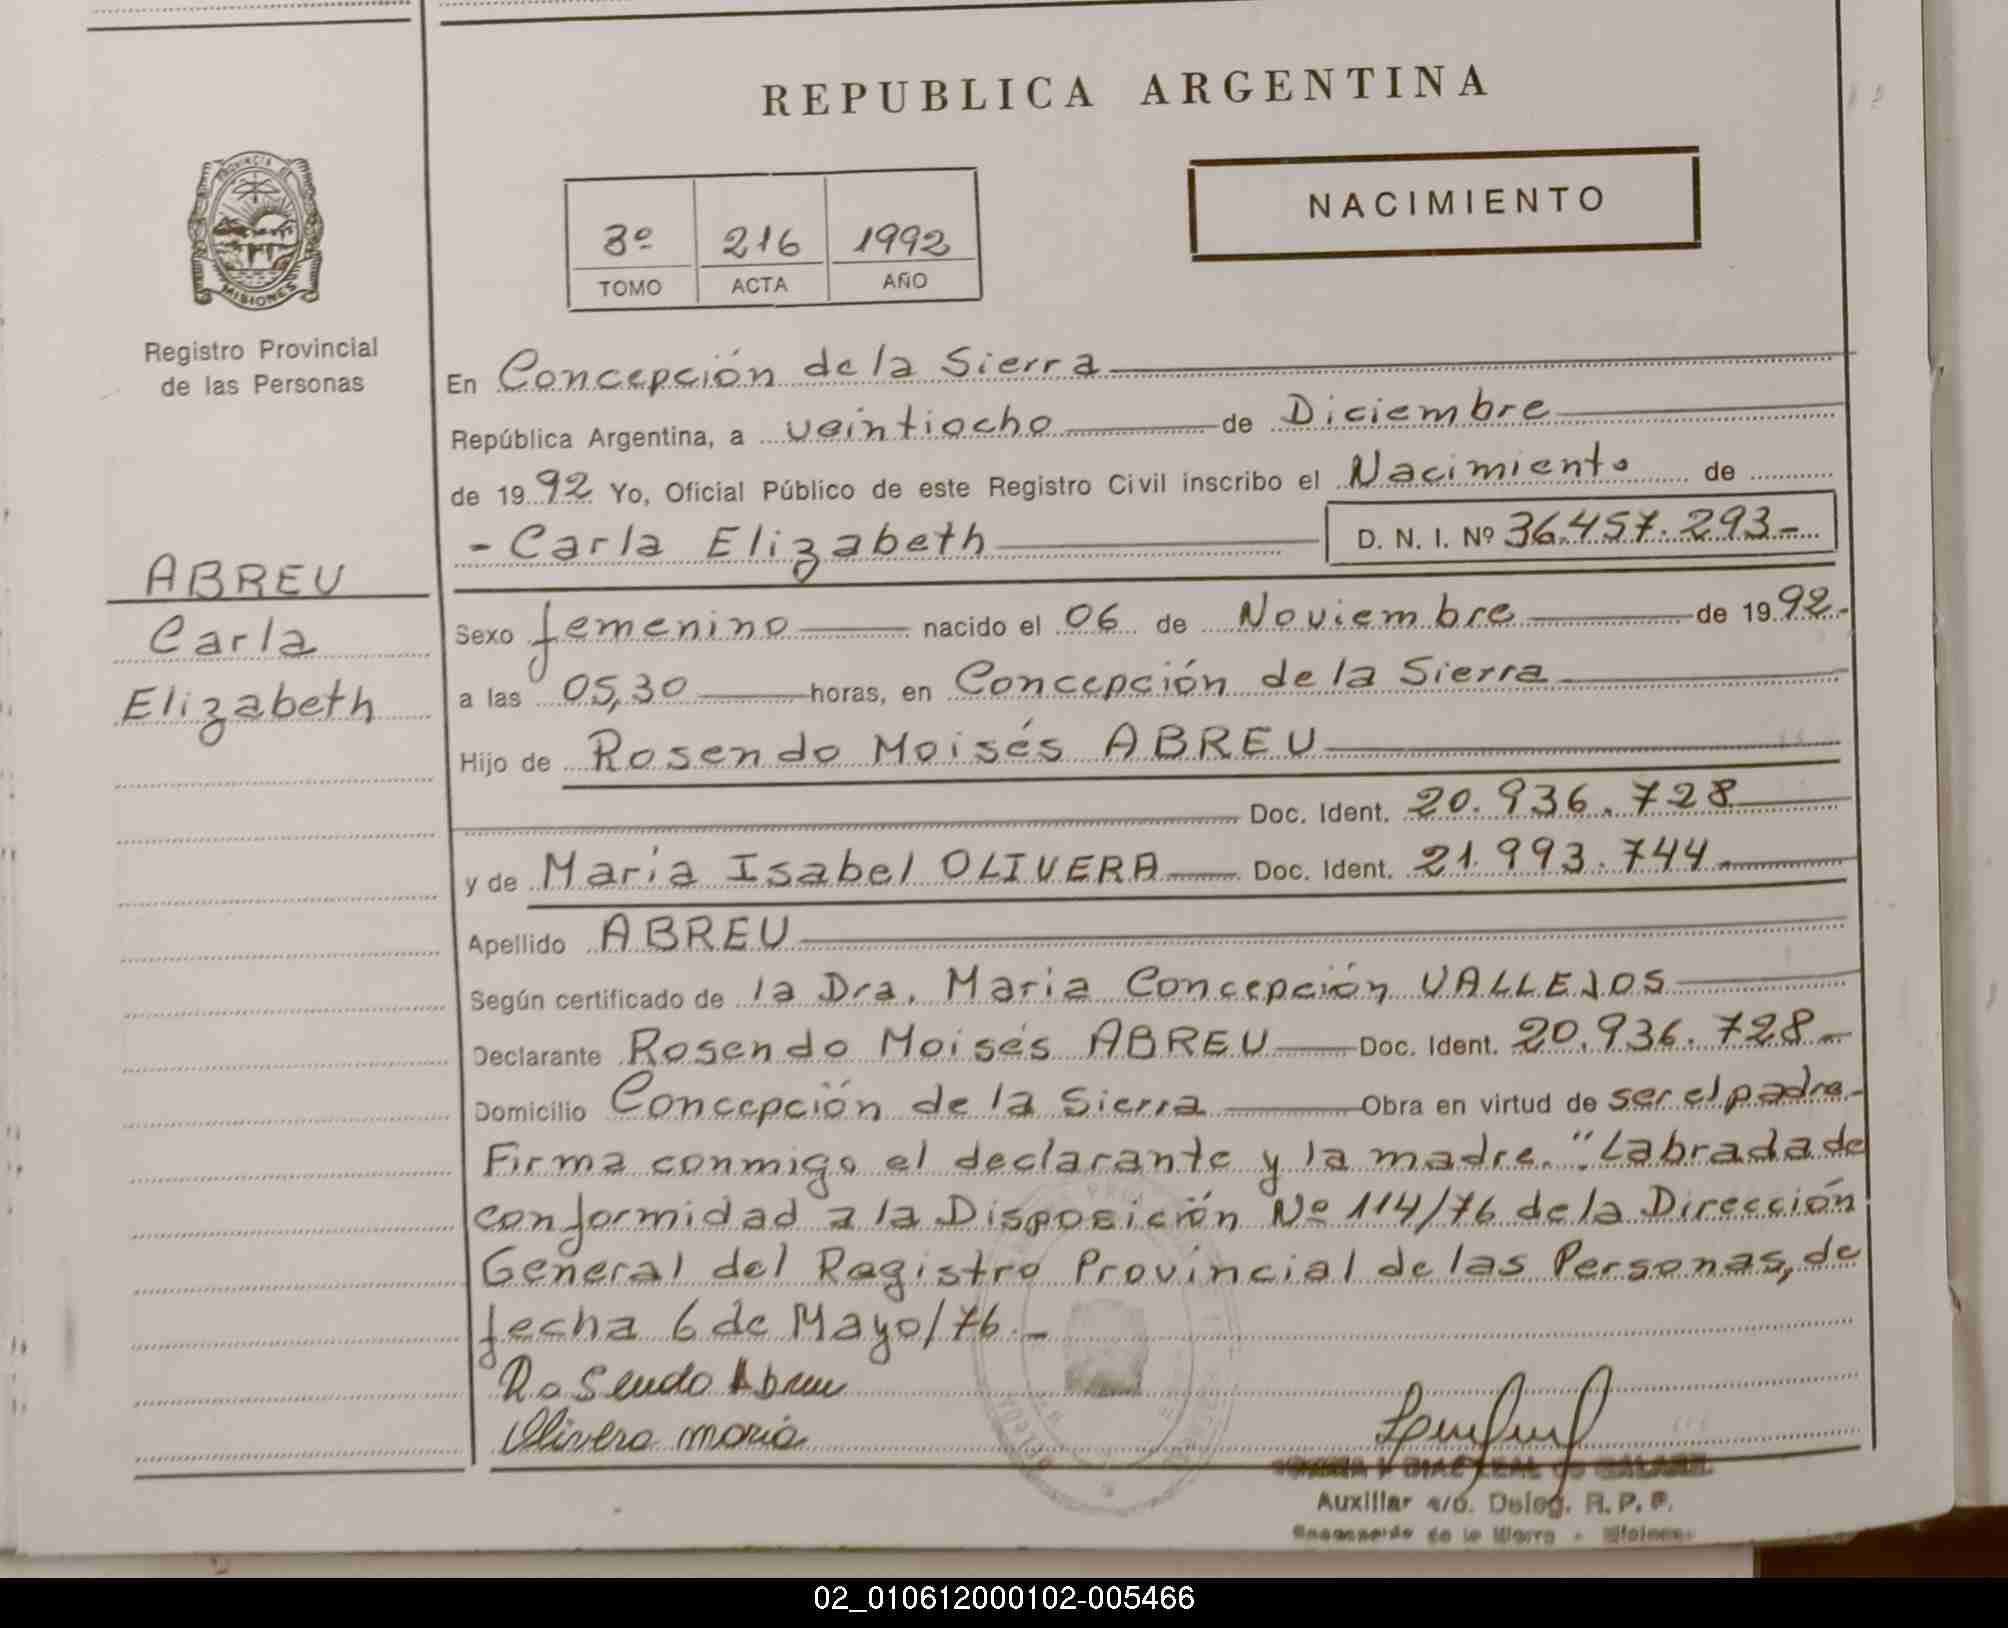 REPUBLICA ARGENTINA
NACIMIENTO
3º 216 1992
TOMO ACTA AÑO
PROVINCIA DE
MISIONES
Registro Provincial
de las Personas
ABREU
Carla
Elizabeth
En Concepción de la Sierra
República Argentina, a veintiocho de Diciembre
de 1992 Yo, Oficial Público de este Registro Civil inscribo el Nacimiento de
- Carla Elizabeth D. N. I. Nº 36.457.293-
Sexo femenino nacido el 06 de Noviembre de 1992-
a las 05,30 horas, en Concepción de la Sierra
Hijo de Rosendo Moisés ABREU
Doc. Ident. 20.936.728
y de Maria Isabel OLIVERA Doc. Ident. 21.993.744
Apellido ABREU
Según certificado de la Dra. Maria Concepción VALLEJOS
Declarante Rosendo Moisés ABREU Doc. Ident. 20.936.728-
Domicilio Concepción de la Sierra Obra en virtud de ser el padre-
Firma conmigo el declarante y la madre. "Labrada de
conformidad a la Disposición Nº 114/76 de la Dirección
General del Registro Provincial de las Personas, de
fecha 6 de Mayo/76.-
Rosendo Abreu
Olivera maria
Auxiliar a/c. Deleg. R. P. P.
de la Sierra - Misiones
02_010612000102-005466